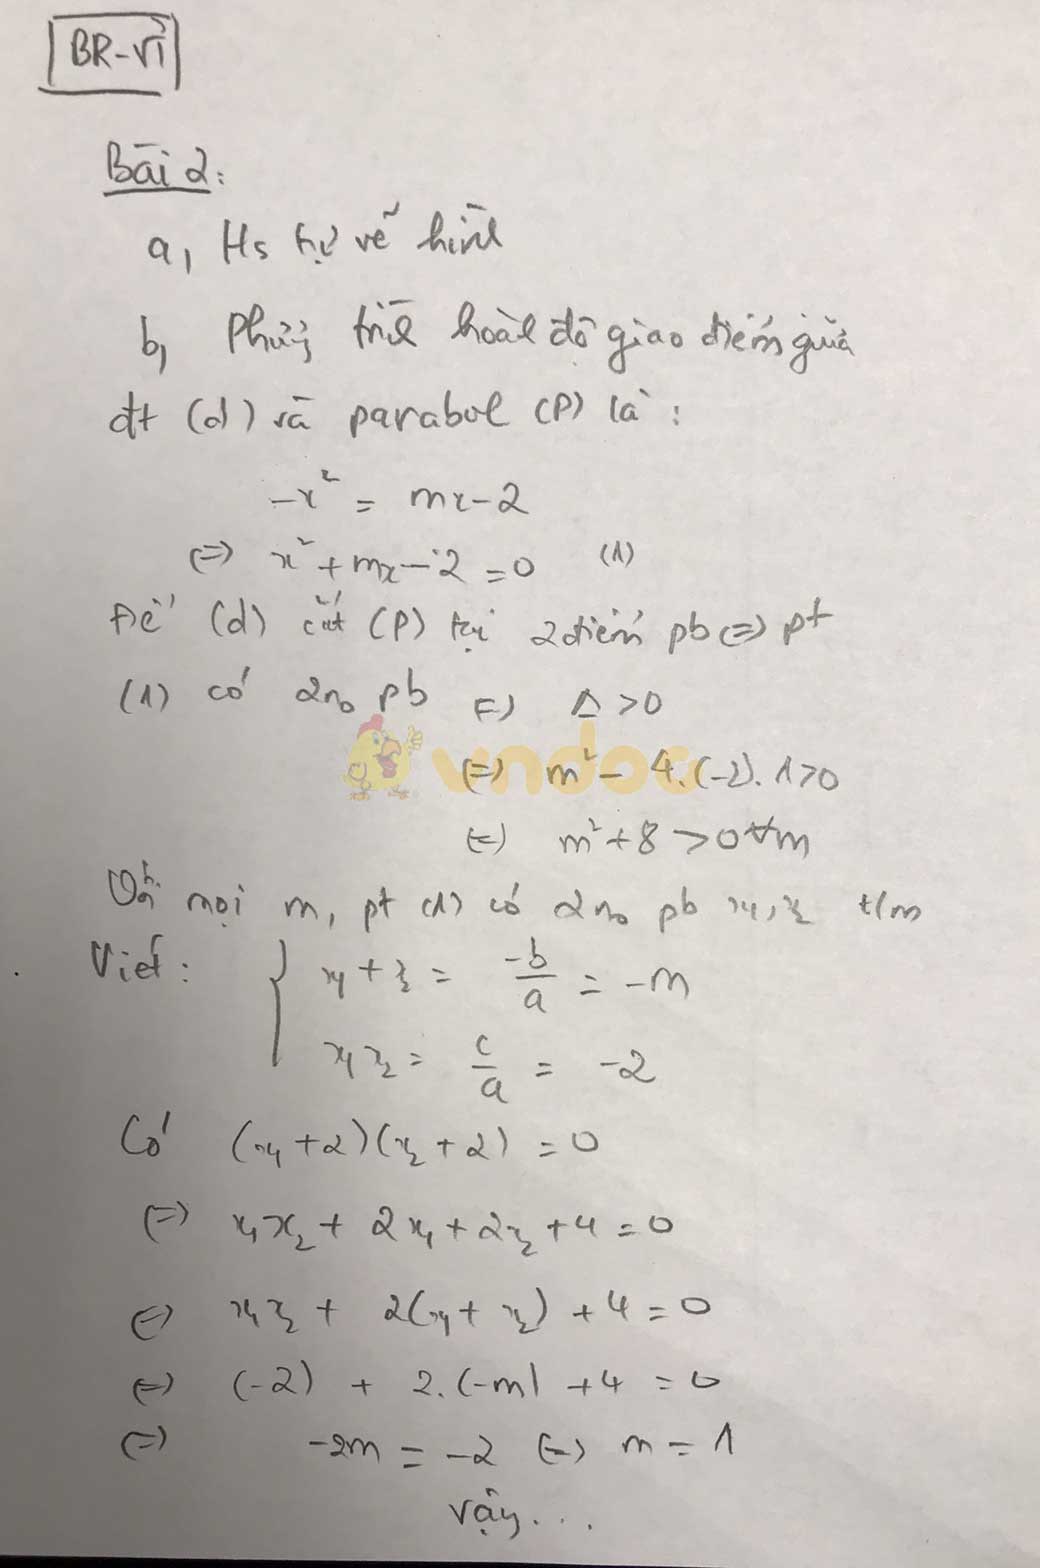 BR-VT
Bài 2:
a, Hs tự vẽ hình
b, Phương trình hoành độ giao điểm giữa
đt (d) và parabol (P) là:
-x² = mx-2
⇔ x² + mx - 2 = 0 (1)
Để (d) cắt (P) tại 2 điểm pb ⇔ pt
(1) có 2 no pb ⇔ Δ > 0
vndoc
⇔ m² - 4.(-2).1 > 0
⇔ m² + 8 > 0 ∀m
Với mọi m, pt (1) có 2 no pb x₁, x₂ t/m
Viet: { x₁ + x₂ = -b/a = -m
x₁x₂ = c/a = -2
Có (x₁ + 2)(x₂ + 2) = 0
⇔ x₁x₂ + 2x₁ + 2x₂ + 4 = 0
⇔ x₁x₂ + 2(x₁ + x₂) + 4 = 0
⇔ (-2) + 2.(-m) + 4 = 0
⇔ -2m = -2 ⇔ m = 1
Vậy...